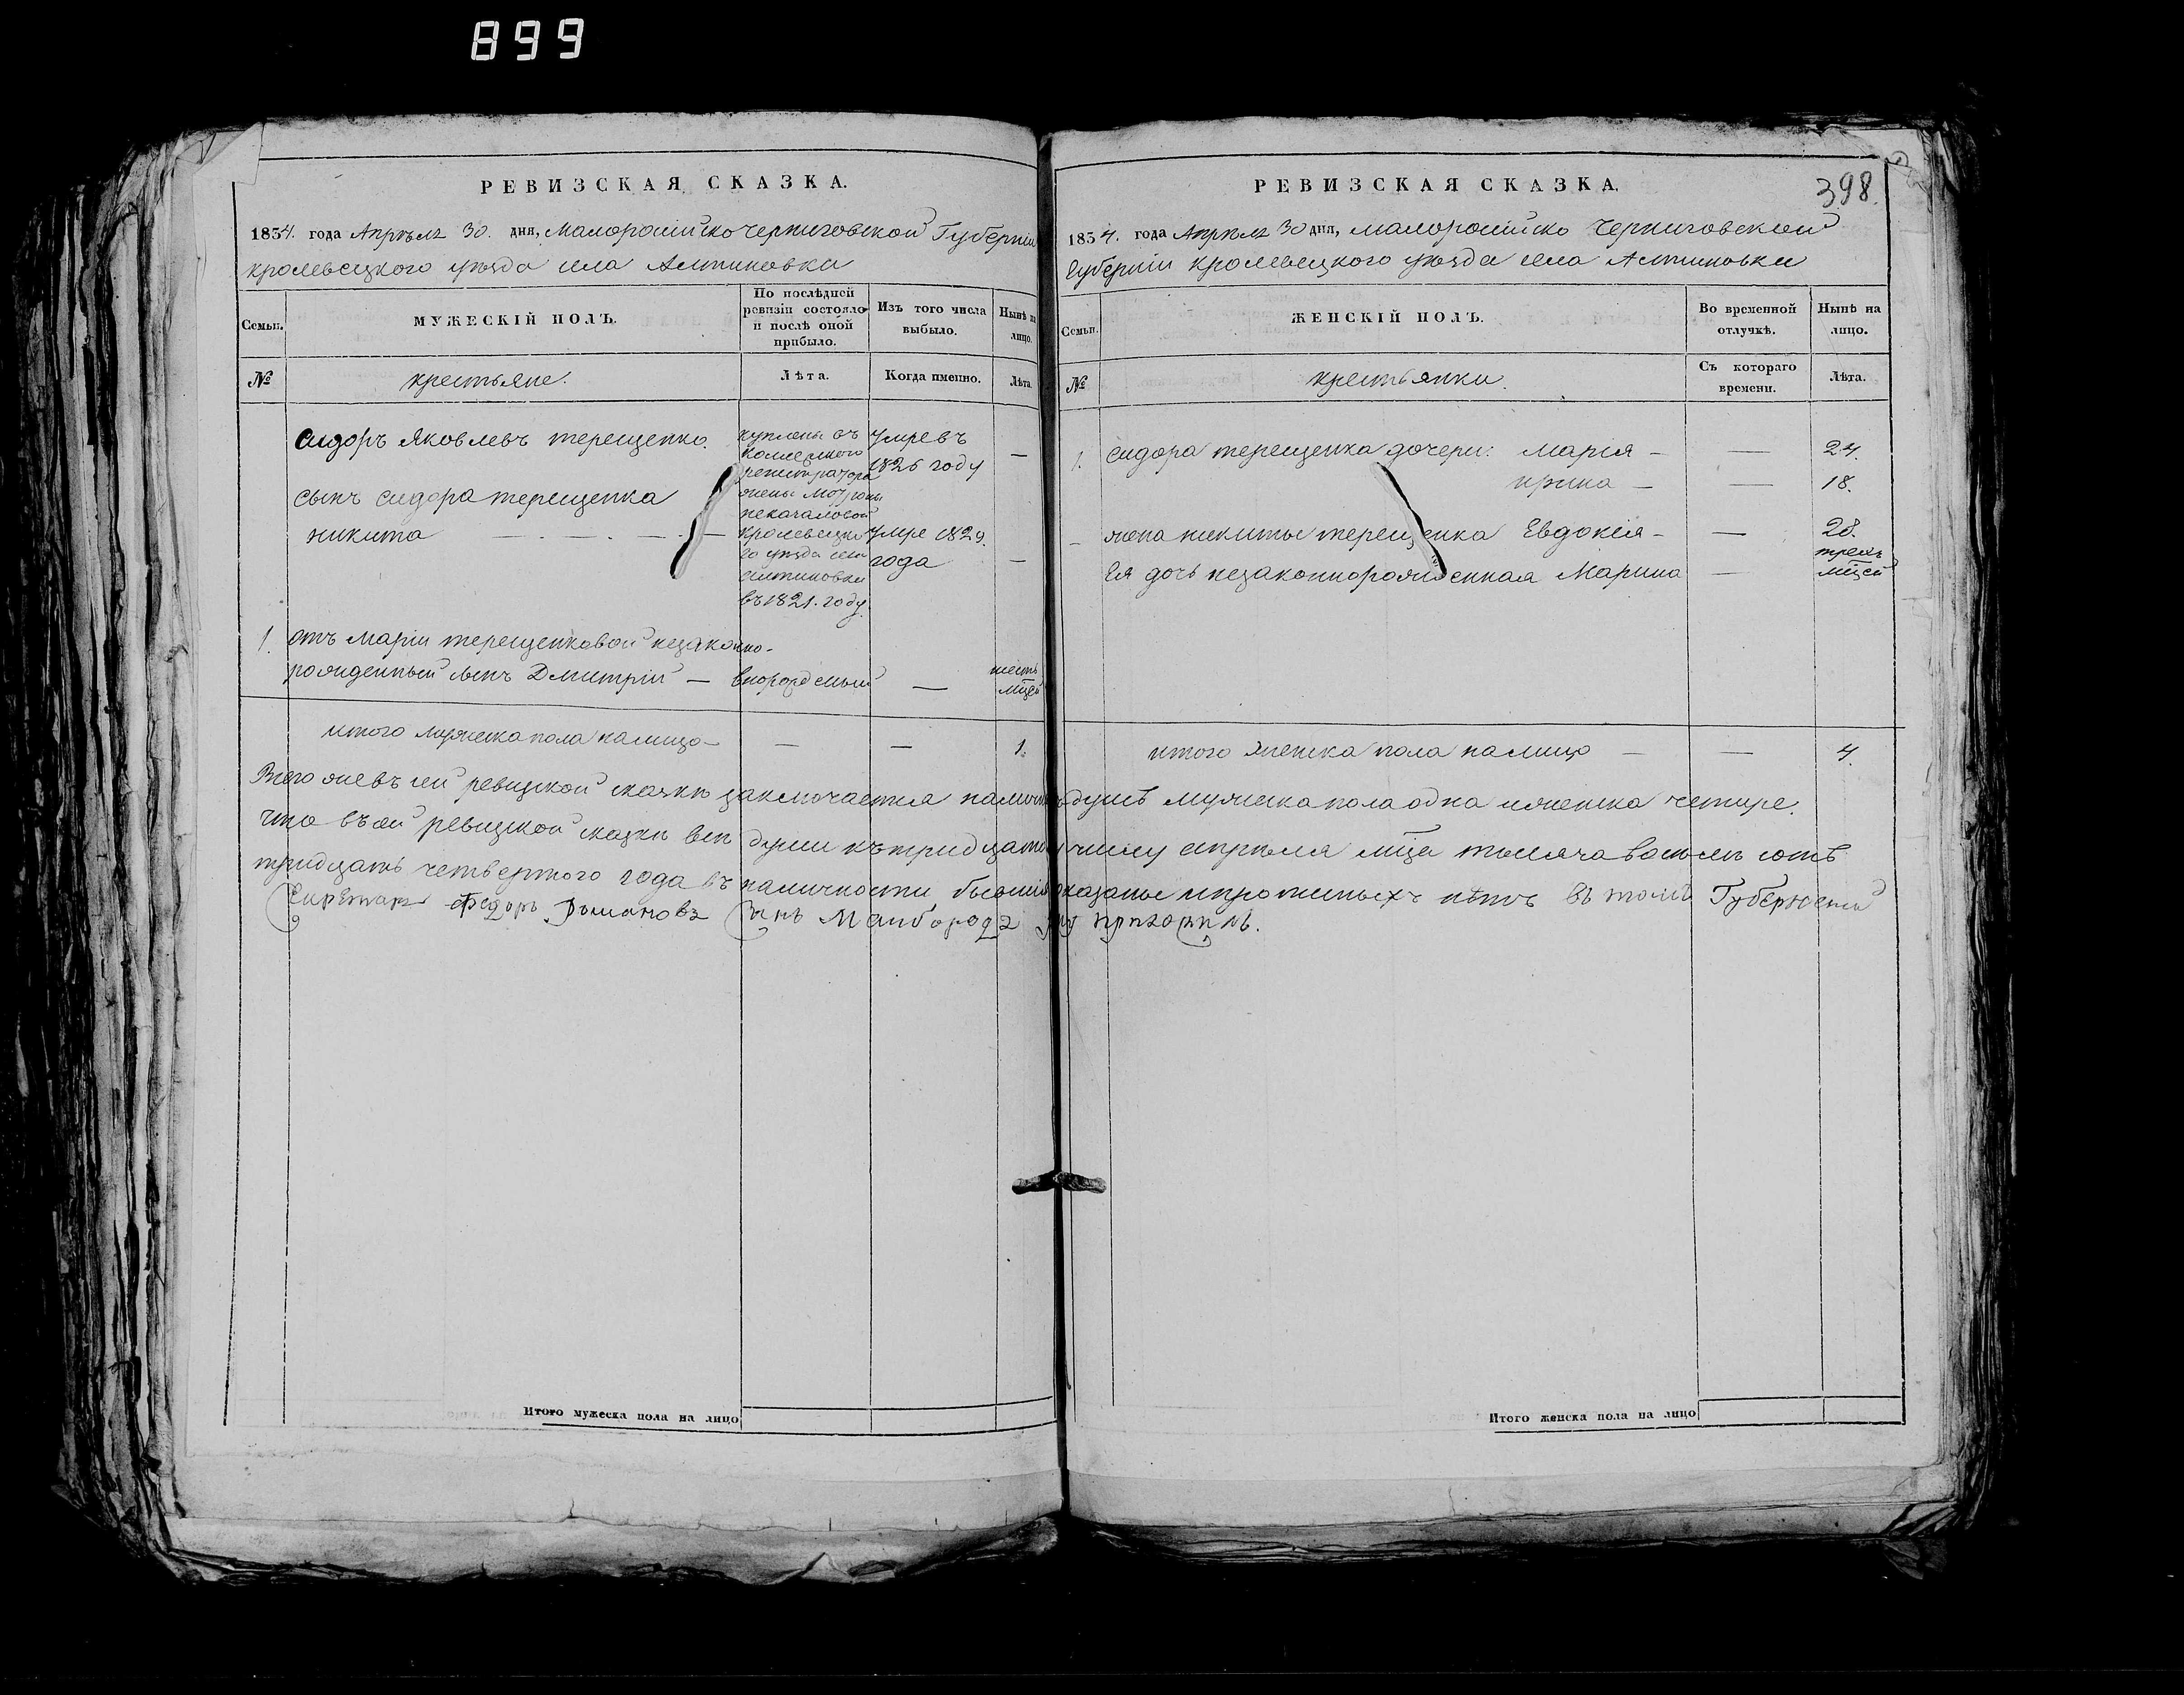 899
РЕВИЗСКАЯ СКАЗКА.
1834. года Апреля 30. дня, Малоросийско Черниговской Губернии
кролевецкого уезда села Алтиновки
Семьи.
МУЖЕСКІЙ ПОЛЪ.
По послѣдней ревизіи состояло и послѣ оной прибыло.
Изъ того числа выбыло.
Нынѣ на лицо.
№
крестьяне.
Лѣта.
Когда именно.
Лѣта.
Сидоръ Яковлевъ терещенко.
куплены отъ
умре въ
—
колежского
регистратора
1826 году
сынъ сидора терещенка
жены Мотроны
никита
кролевецко
умре 1829.
го уѣзда села
года
—
алтиновки
въ 1821. году.
1. отъ маріи терещенковой незаконно-
рожденный сынъ Дмитрій —
—
шесть мцей
итого мужеска пола налицо —
—
—
1.
РЕВИЗСКАЯ СКАЗКА.
398
1834. года Апреля 30 дня, малоросийско Черниговской
Губерніи кролевецкого уезда села Алтиновки
Семьи.
ЖЕНСКІЙ ПОЛЪ.
Во временной отлучкѣ.
Нынѣ на лицо.
№
крестьянки.
Съ котораго времени.
Лѣта.
1. сидора терещенка дочери: Марія —
—
24.
ирина —
—
18.
жена никиты терещенка Евдокія —
—
28.
Ея дочь незаконнорожденная Марина
—
трехъ мцей
итого женска пола налицо —
—
4.
Всего же въ сей ревизской сказкѣ заключается налицо душъ мужеска пола одна и женска четыре.
что въ сей ревизской сказкѣ все души къ тридцатому числу апреля мца тысяча восемь сотъ
тридцать четвертого года въ наличности бывшія показаны и прописныхъ нетъ въ томъ Губернский
Секретарь Федоръ Романовъ Сынъ Майборода
Итого мужеска пола на лицо
Итого женска пола на лицо